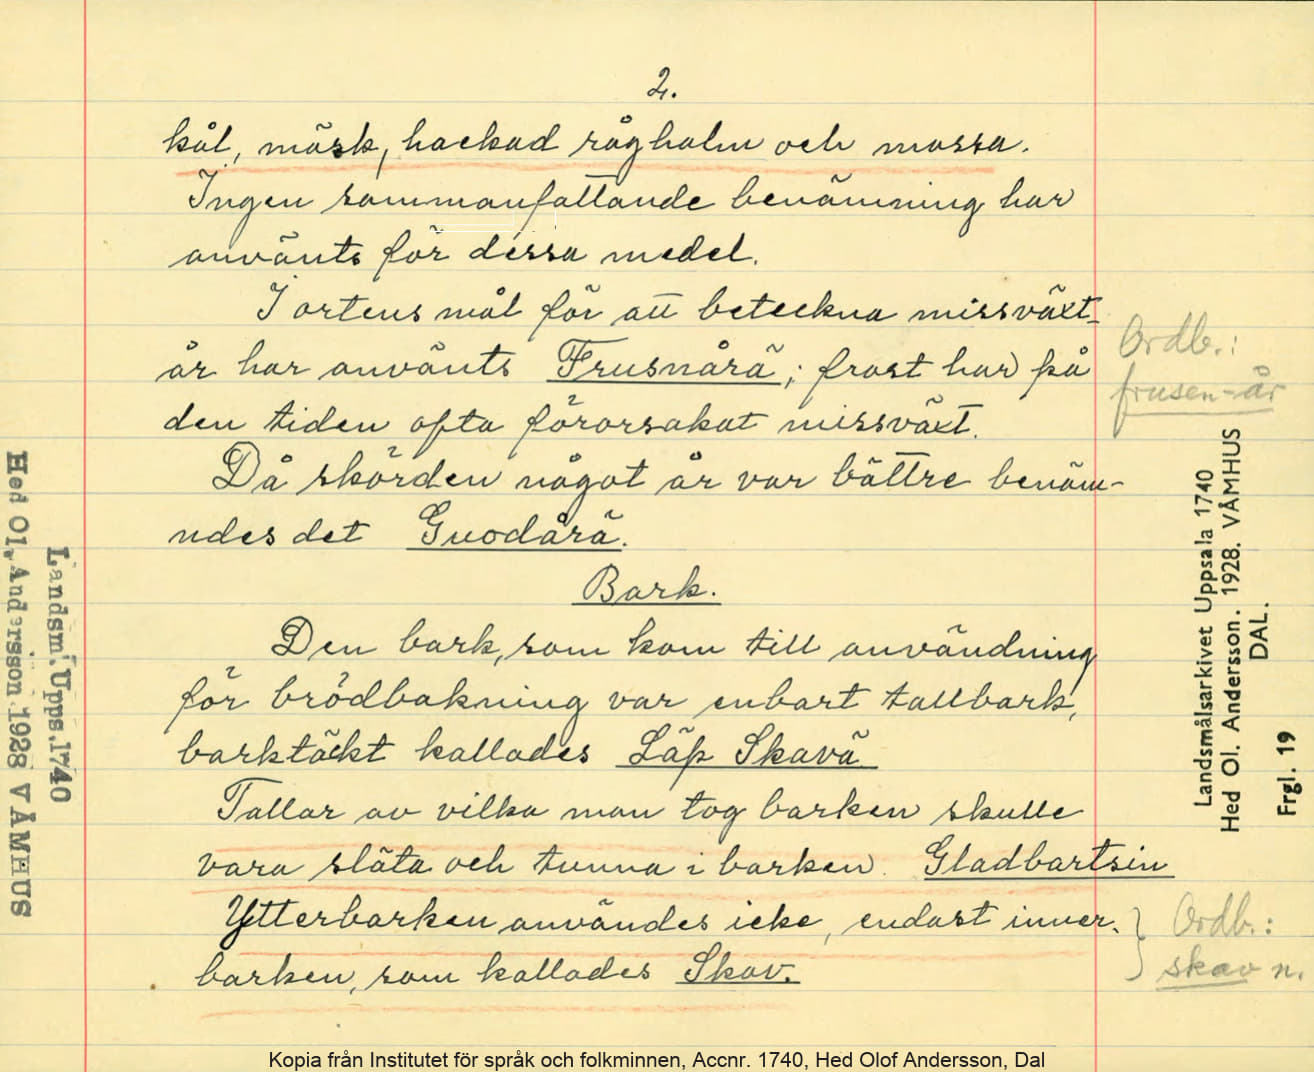 2.
kål, mäsk, hackad råghalm och mossa.
Ingen sammanfattande benämning har
använts för dessa medel.
I ortens mål för att beteckna missväxt-
år har använts Frusnårä; frost har på
den tiden ofta förorsakat missväxt.
Då skörden något år var bättre benäm-
ndes det Guodårä.
Bark.
Den bark, som kom till användning
för brödbakning var enbart tallbark,
barktäkt kallades Läp Skavä
Tallar av vilka man tog barken skulle
vara släta och tunna i barken. Gladbartsin
Ytterbarken användes icke, endast inner-
barken, som kallades Skav.
Ordb.:
frusen-år
Ordb.:
skav n.
Landsm. Upps. 1740
Hed Ol. Andersson. 1928 VÅMHUS
Landsmålsarkivet Uppsala 1740
Hed Ol. Andersson. 1928. VÅMHUS
DAL.
Frgl. 19
Kopia från Institutet för språk och folkminnen, Accnr. 1740, Hed Olof Andersson, Dal